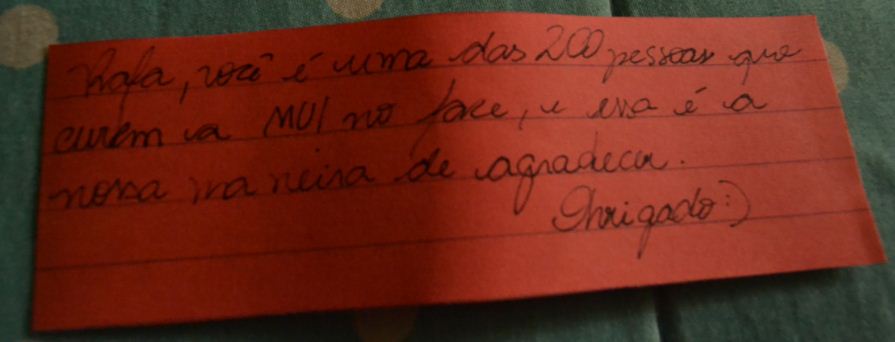 Rafa, você é uma das 200 pessoas que
curem a MUI no face, e essa é a
nossa maneira de agradecer.
Obrigado :)